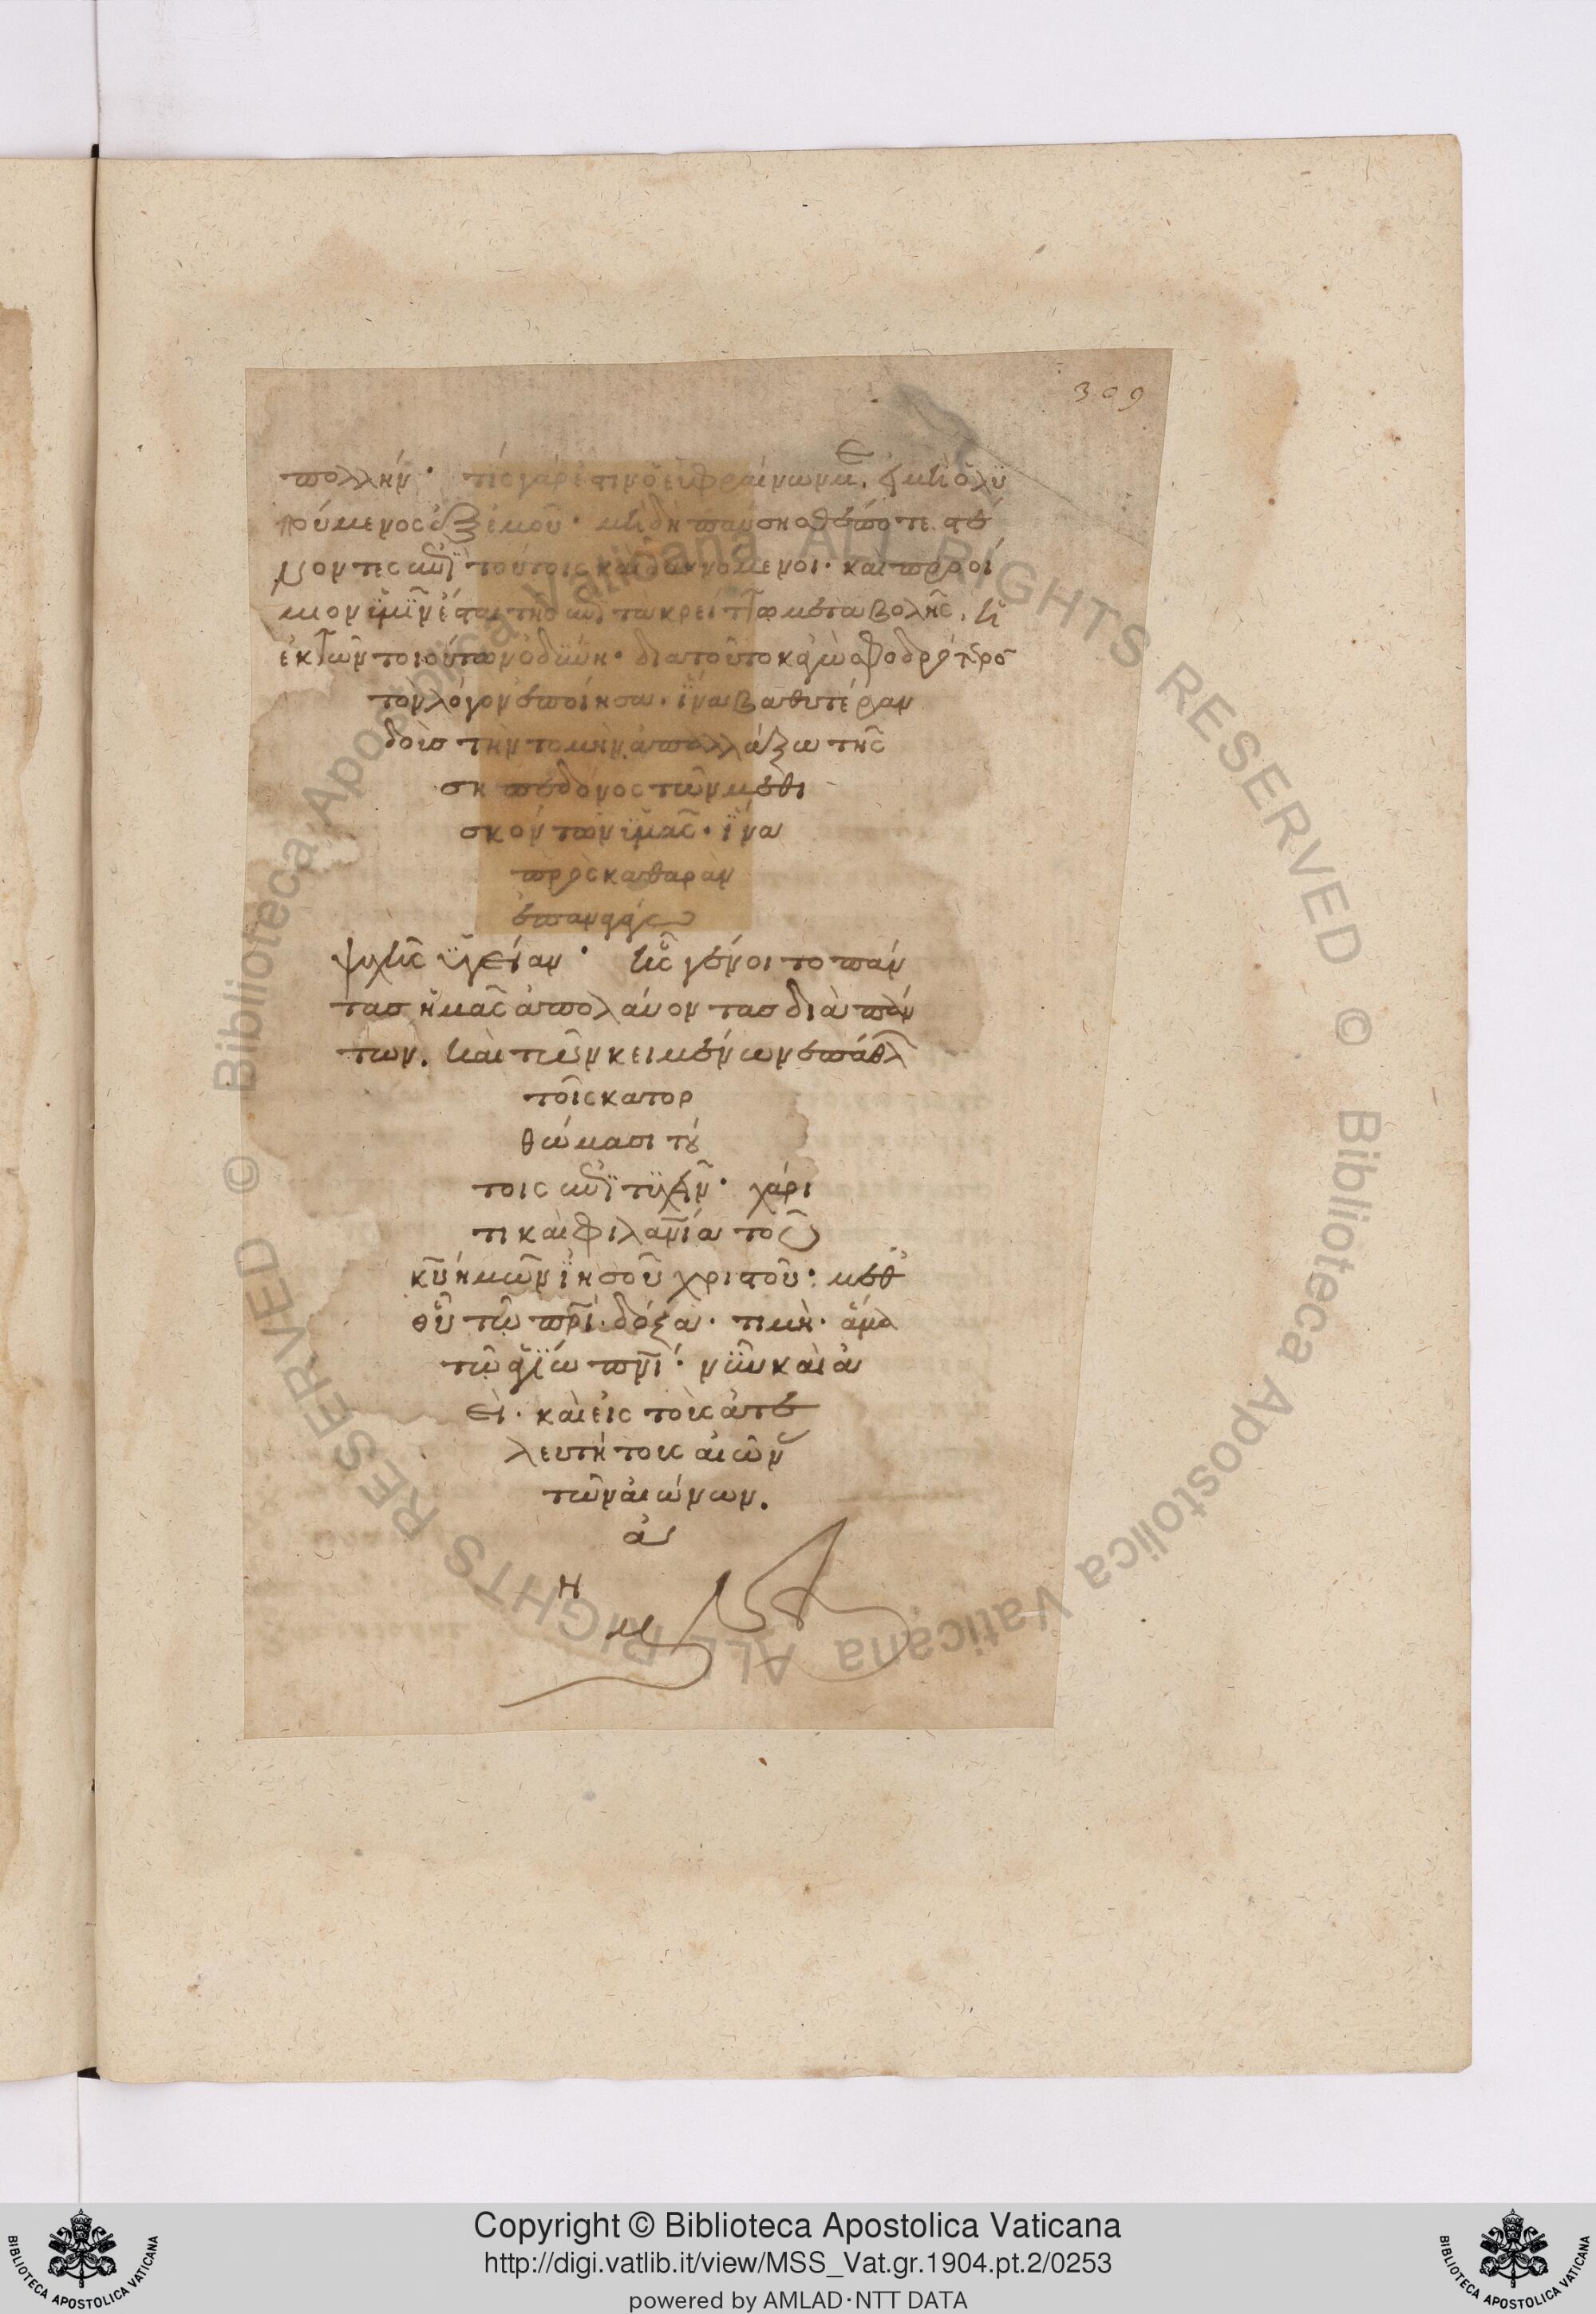 309
πολλήν· τίς γάρ ἐστιν ὁ εὐφραίνων με, εἰ μὴ ὁ λυ
πούμενος ἐξ ἐμοῦ· μὴ δὴ παύσησθέ ποτε στέ
νοντες ἐπὶ τούτοις καὶ δακνόμενοι· καὶ προοί
μιον ὑμῖν ἔσται τῆς ἐπὶ τὰ κρείττω μεταβολῆς, ἡ
ἐκ τῶν τοιούτων ὀδύνη· διὰ τοῦτο κἀγὼ σφοδρότερον
τὸν λόγον ἐποίησα· ἵνα βαθυτέραν
δοὺς τὴν τομὴν ἀπαλλάξω τῆς
σηπεδόνος τῶν μεθυ
σκόντων ὑμᾶς· ἵνα
πρὸς καθαρὰν
ἐπανάγω
ψυχῆς ὑγείαν· ἧς γένοιτο πάν
τας ἡμᾶς ἀπολαύοντας διὰ πάν
των. καὶ τῶν κειμένων ἐπάθλων
τοῖς κατορ
θώμασι τού
τοις ἐπιτυχεῖν· χάρι
τι καὶ φιλανῖα τοῦ
κῡ ἡμῶν ἰησοῦ χριστοῦ· μεθ'
οὗ τῷ πρῒ· δόξα· τιμὴ· ἅμα
τῷ ἁγίω πνῒ· νῦν καὶ ἀ
εὶ· καὶ εἰς τοὺς ἀτε
λευτήτους αἰῶνας
τῶν αἰώνων.
ἀ
μ
ή
ν
Copyright © Biblioteca Apostolica Vaticana
http://digi.vatlib.it/view/MSS_Vat.gr.1904.pt.2/0253
powered by AMLAD·NTT DATA
BIBLIOTECA APOSTOLICA VATICANA
BIBLIOTECA APOSTOLICA VATICANA
© Biblioteca Apostolica Vaticana ALL RIGHTS RESERVED
© Biblioteca Apostolica Vaticana ALL RIGHTS RESERVED